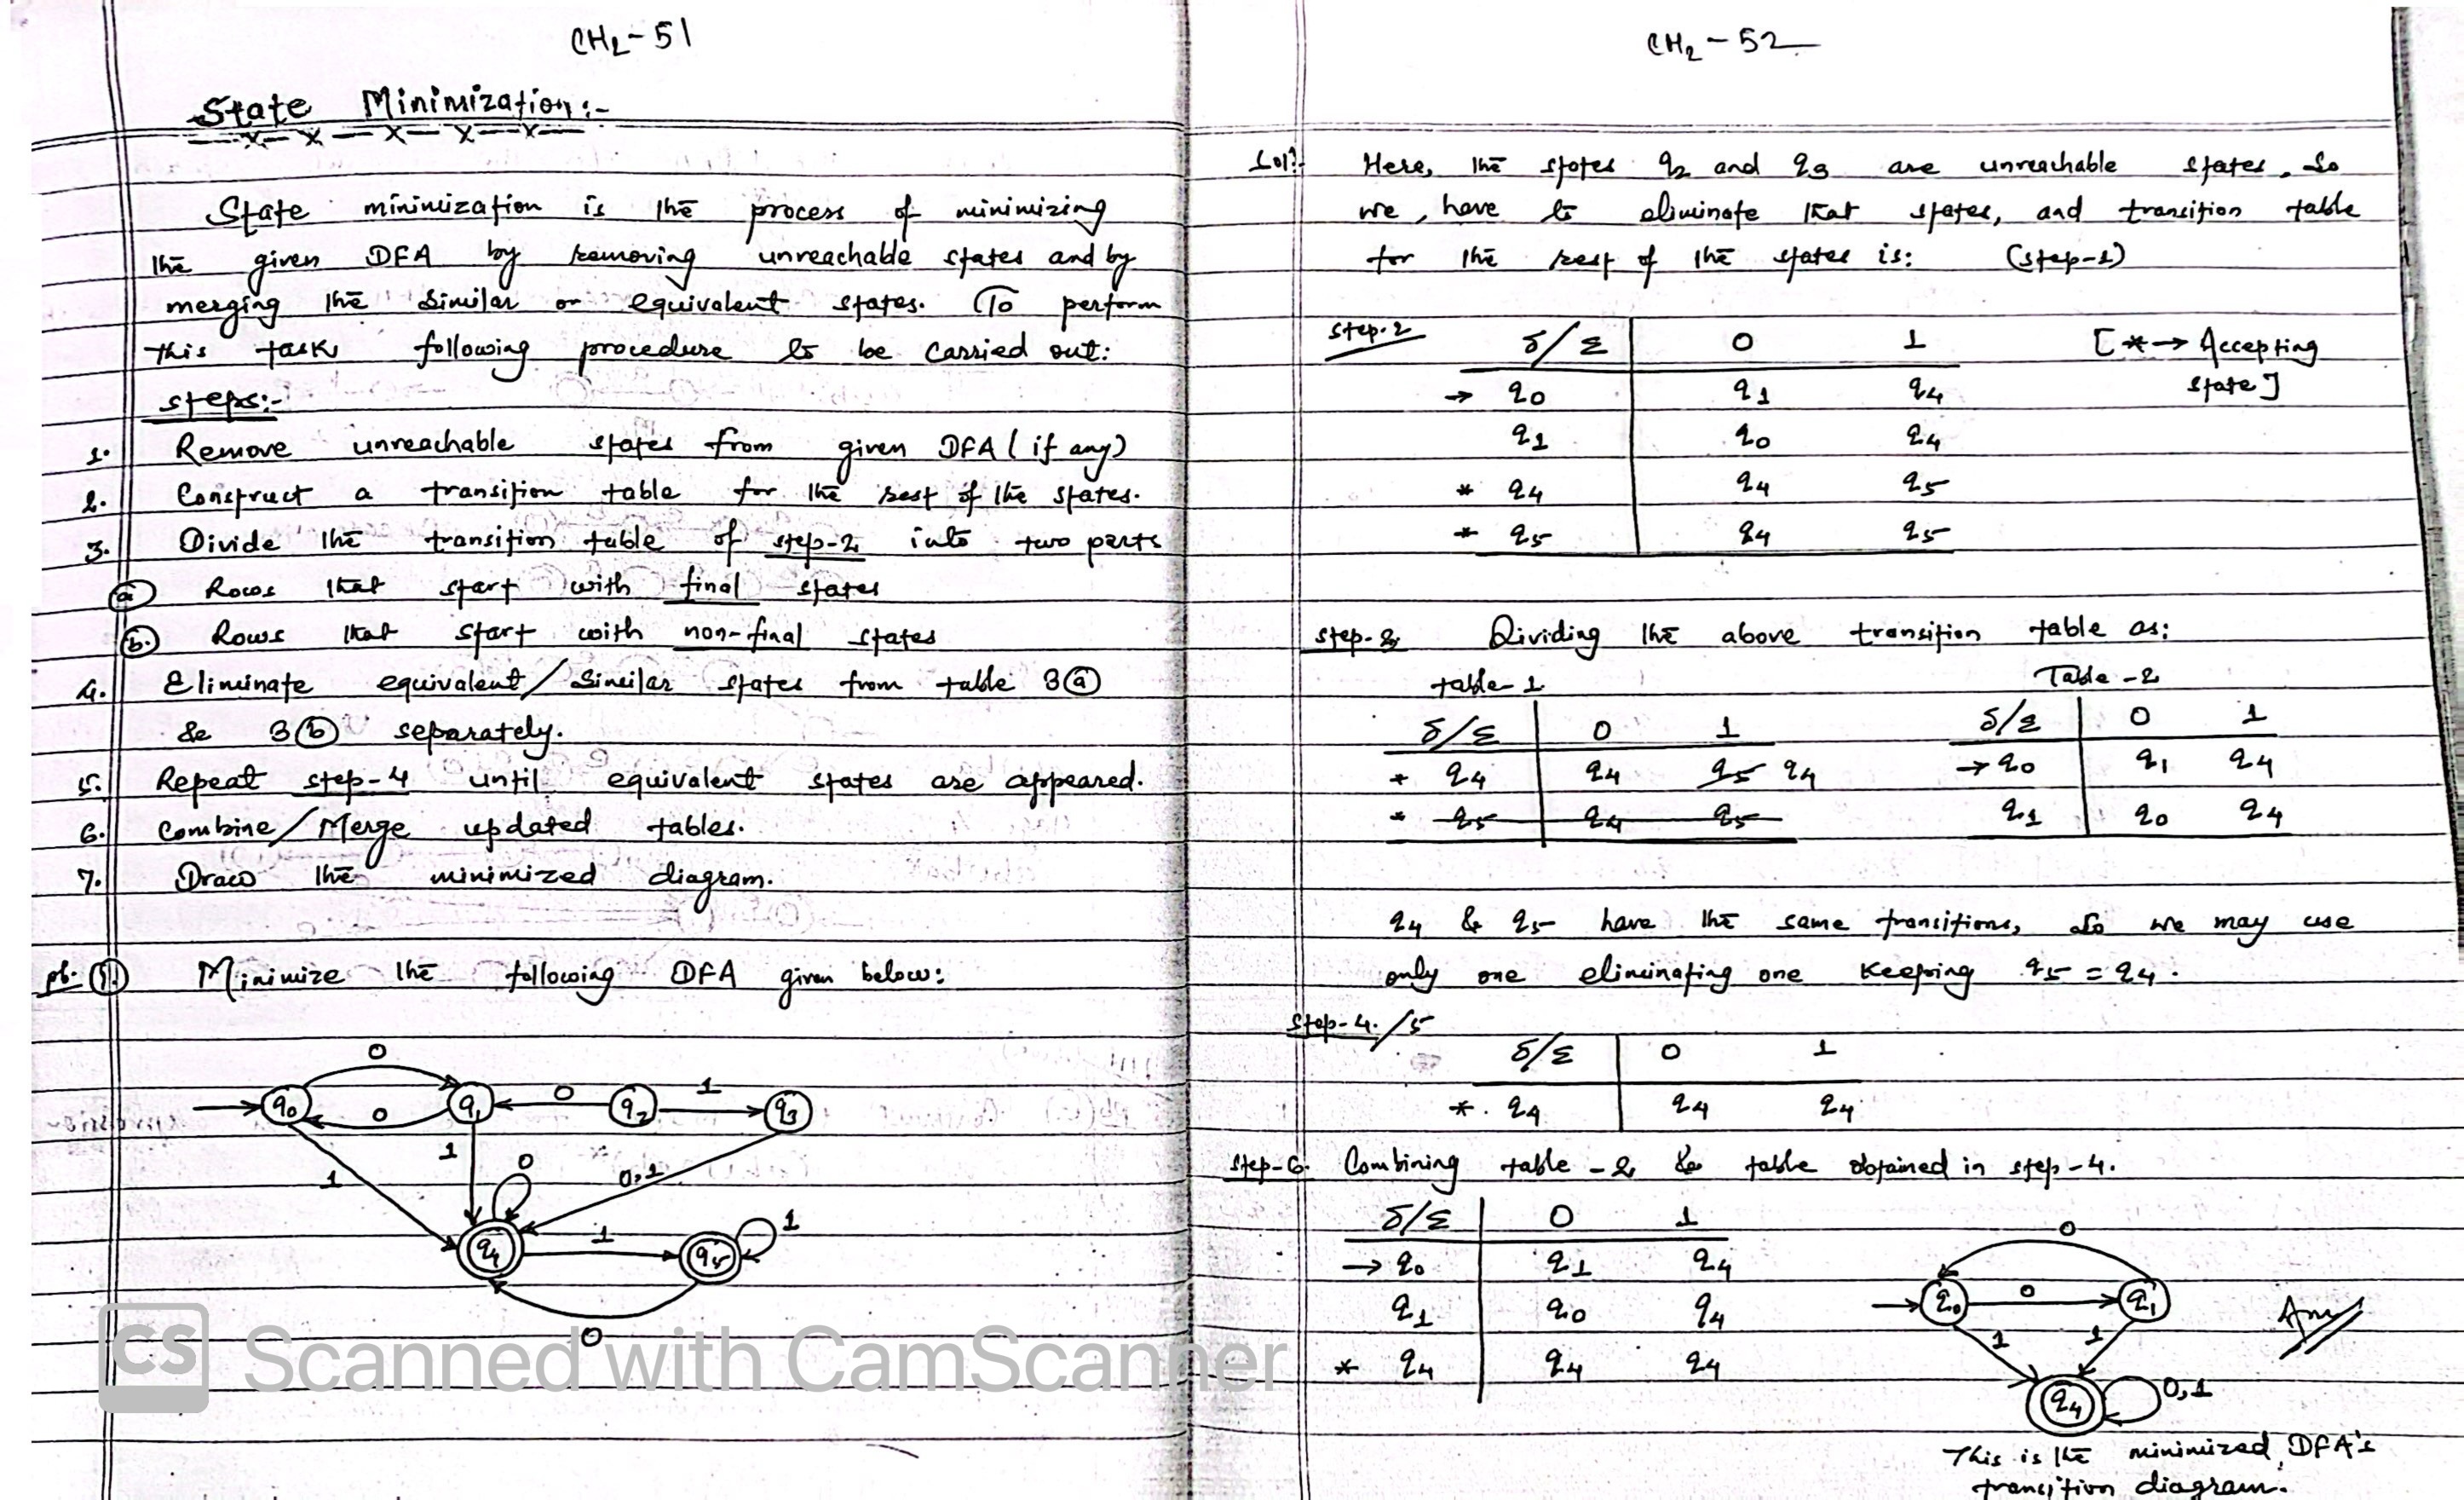 CH2-51
State Minimization:-
State minimization is the process of minimizing
the given DFA by removing unreachable states and by
merging the similar or equivalent states. To perform
this task following procedure to be carried out:
steps:-
1. Remove unreachable states from given DFA (if any)
2. Construct a transition table for the rest of the states.
3. Divide the transition table of step-2 into two parts
a Rows that start with final states
b. Rows that start with non-final states
4. Eliminate equivalent/similar states from table 3(a)
& 3(b) separately.
5. Repeat step-4 until equivalent states are appeared.
6. Combine/Merge updated tables.
7. Draw the minimized diagram.
pb. 1. Minimize the following DFA given below:
0
q0 0 q1 0 q2 1 q3
1 1 0 0,1
q4 1 q5 1
0
CS Scanned with CamScanner
CH2-52
Sol: Here, the states q2 and q3 are unreachable states, so
we, have to eliminate that states, and transition table
for the rest of the states is: (step-1)
step-2 δ/Σ 0 1 [*→ Accepting
state]
→ q0 q1 q4
q1 q0 q4
* q4 q4 q5
* q5 q4 q5
step-3 Dividing the above transition table as:
table-1 Table-2
δ/Σ 0 1 δ/Σ 0 1
* q4 q4 q5 q4 → q0 q1 q4
* q5 q4 q5 q1 q0 q4
q4 & q5 have the same transitions, so we may use
only one eliminating one keeping q5 = q4.
step-4./5
δ/Σ 0 1
*. q4 q4 q4
step-6. Combining table-2 & table obtained in step-4.
δ/Σ 0 1
→ q0 q1 q4
q1 q0 q4
* q4 q4 q4
0
q0 0 q1
Ans
1 1
q4 0,1
This is the minimized DFA's
transition diagram.